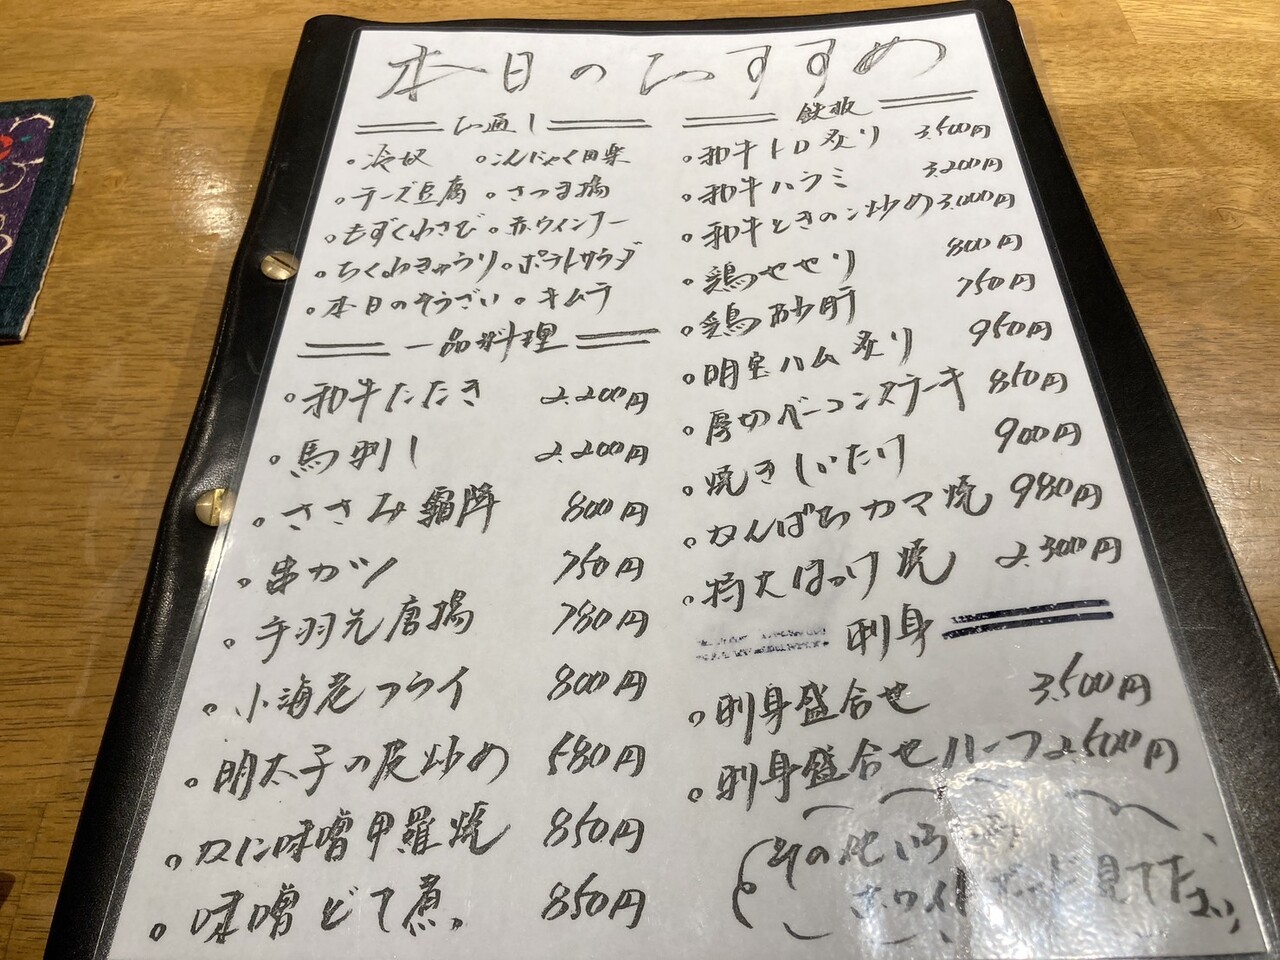 本日のおすすめ
お通し
・冷奴 ・こんにゃく田楽
・チーズ豆腐 ・さつま揚
・もずくわさび ・赤ウィンナー
・ちくわきゅうり ・ポテトサラダ
・本日のそうざい ・キムチ
一品料理
・和牛たたき 2.200円
・馬刺し 2.200円
・ささみ霜降 800円
・串カツ 750円
・手羽先唐揚 780円
・小海老フライ 800円
・明太子の皮炒め 580円
・かに味噌甲羅焼 850円
・味噌どて煮 850円
鉄板
・和牛トロ炙り 3.500円
・和牛ハラミ 3.200円
・和牛ときのこ炒め 3.000円
・鶏せせり 800円
・鶏砂肝 750円
・明宝ハム炙り 950円
・厚切ベーコンステーキ 850円
・焼きしいたけ 900円
・かんぱちカマ焼 980円
・特大ほっけ焼 2.300円
刺身
・刺身盛合せ 3.500円
・刺身盛合せハーフ 2.500円
その他いろ
ホワイトボード見て下さい